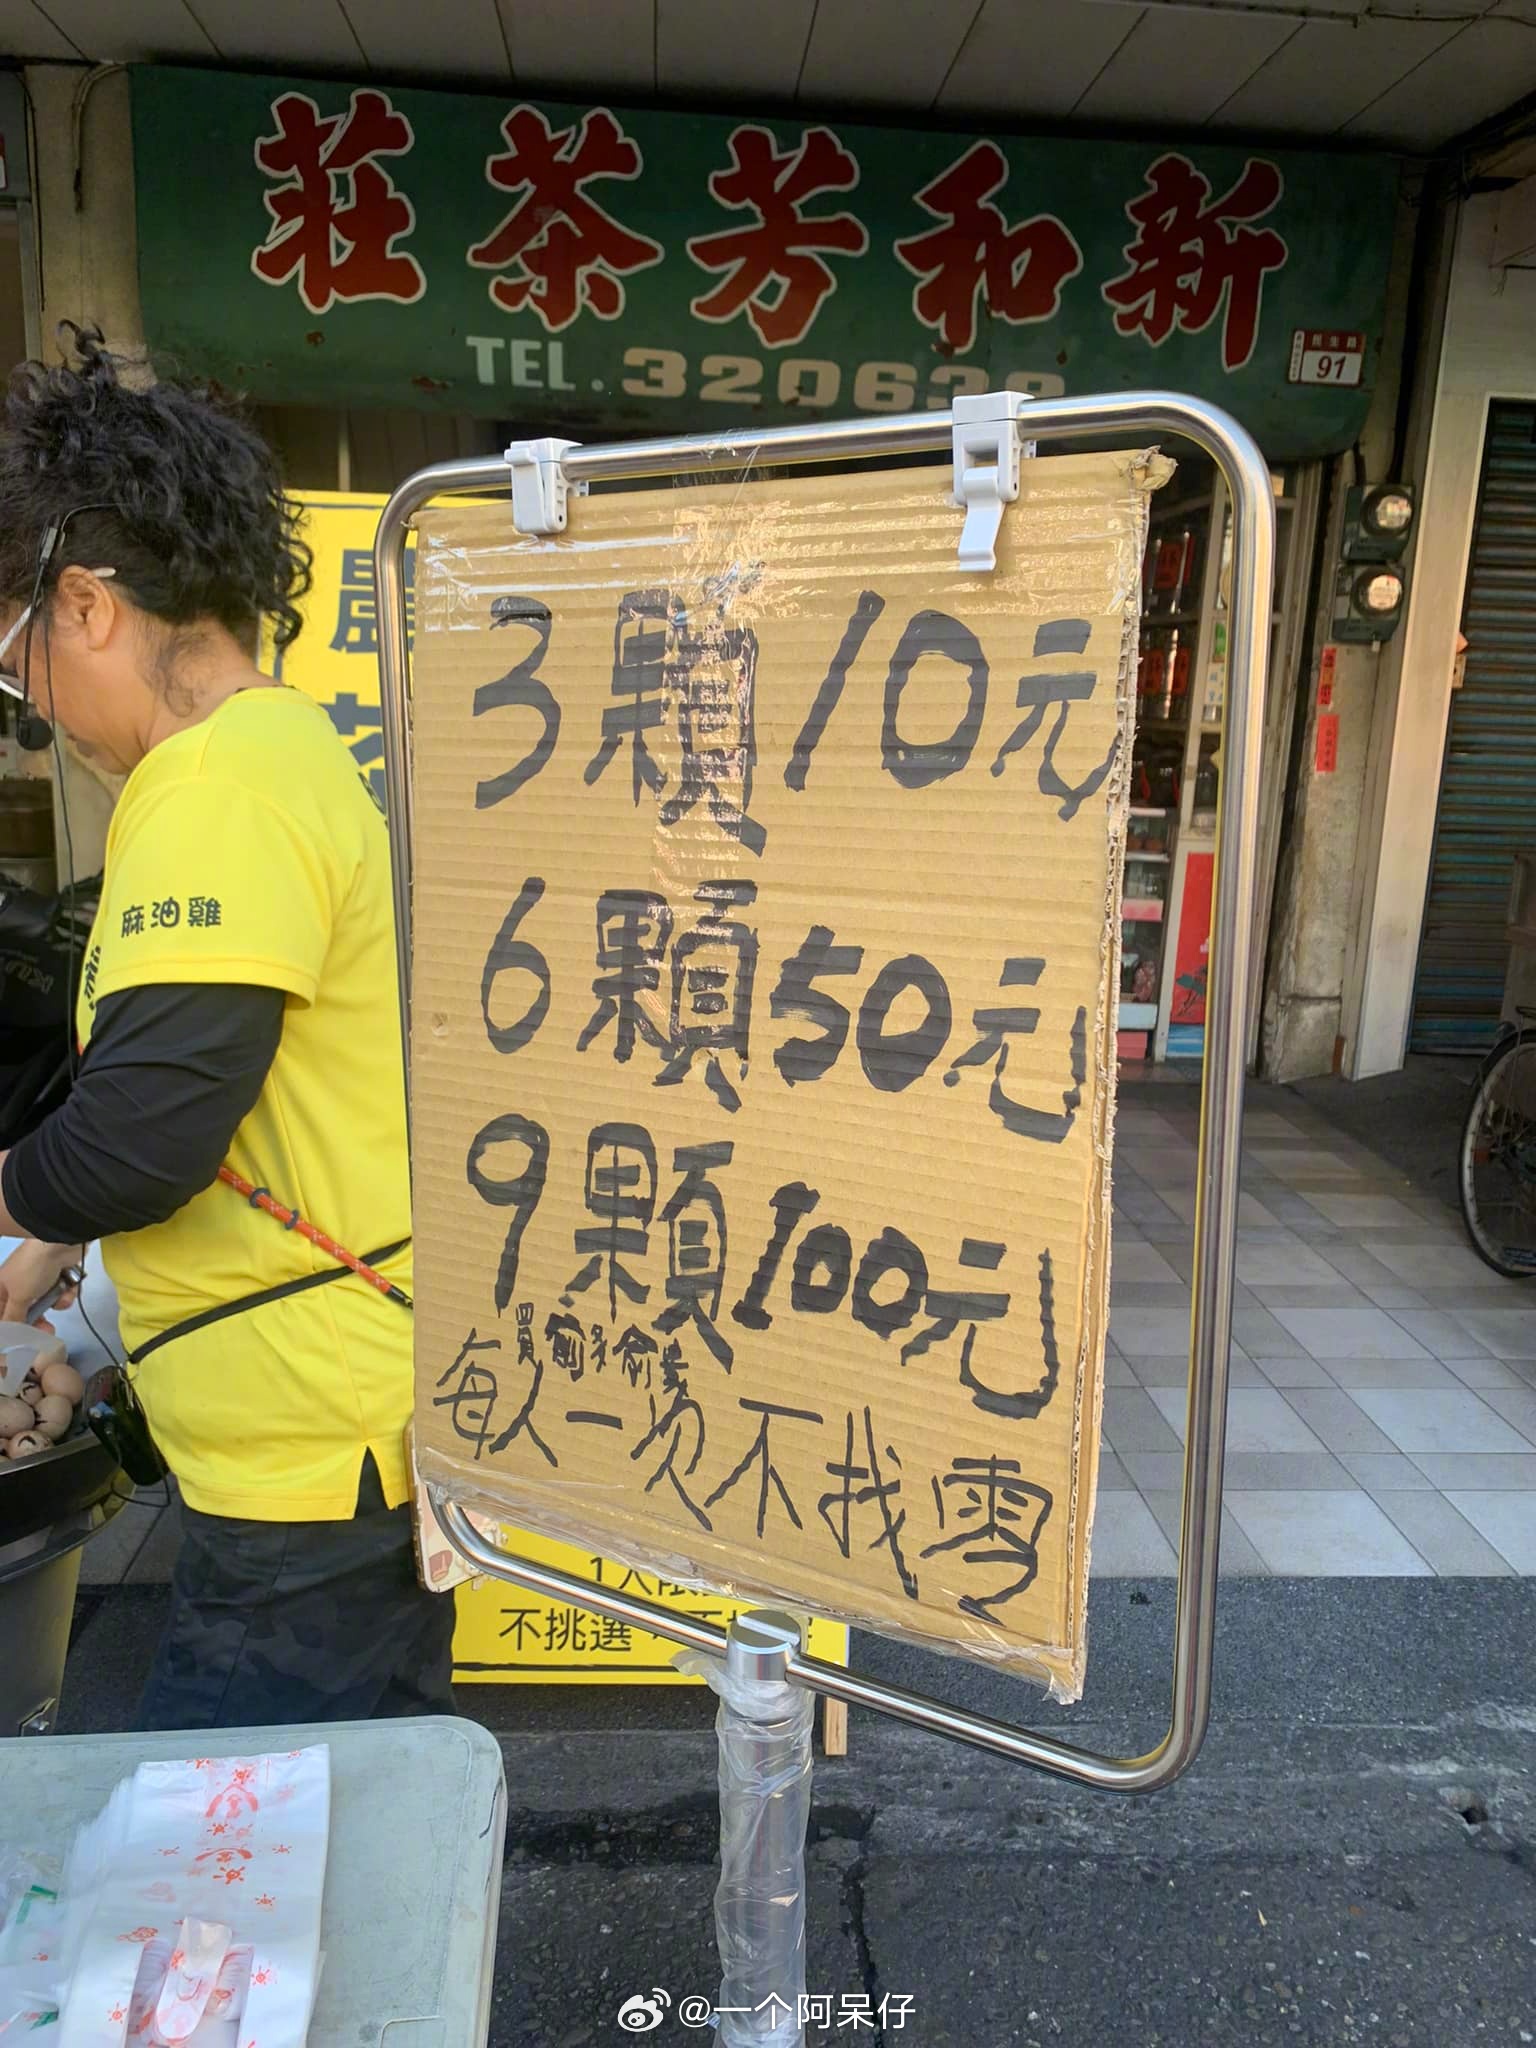 莊茶芳和新
TEL.320638
民生路
91
3顆10元
6顆50元
9顆100元
買愈多愈貴
每人一次不找零
麻油雞
不挑選
@一个阿呆仔